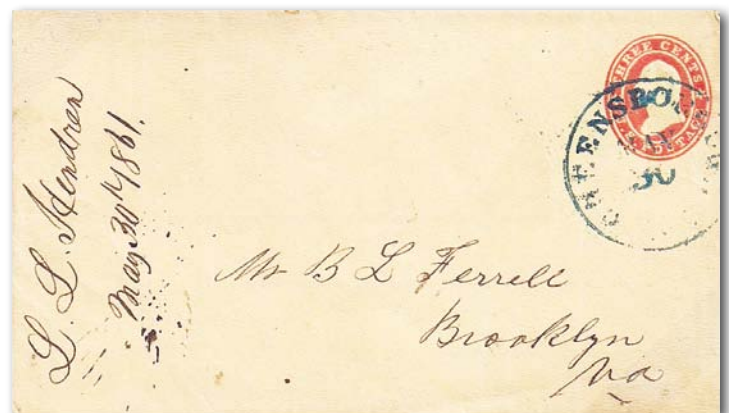 L. L. Hendren
May 30th 1861.
THREE CENTS
POSTAGE
GREENSBO
MAY
30
Mr B L Ferrell
Brooklyn
Va